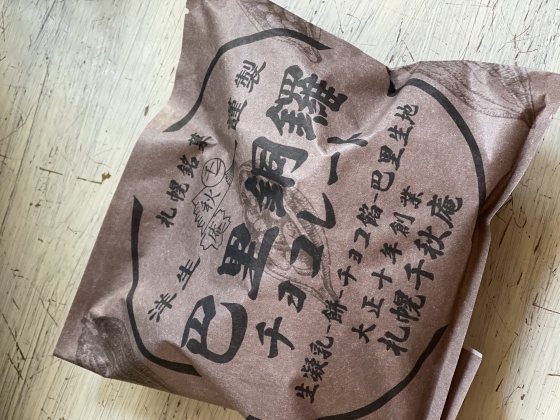 札幌銘菓
洋生
謹製
千秋庵
巴里銅鑼
チョコレート
生凝乳-餅-チョコ餡-巴里生地
大正十年創業
札幌千秋庵